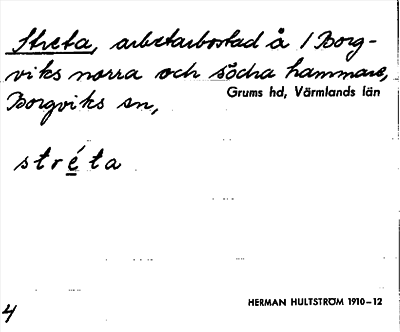 Streta, arbetarbostad å 1 Borg-
viks norra och södra hammare,
Grums hd, Värmlands län
Borgviks sn,
stréta
HERMAN HULTSTRÖM 1910–12
4